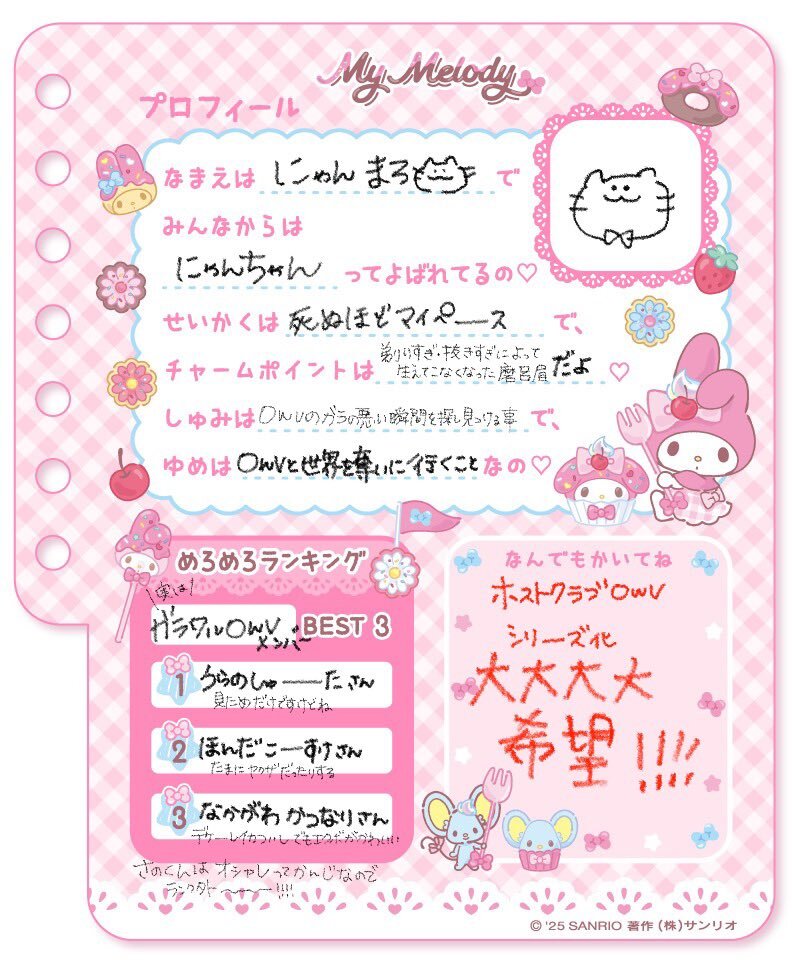 My Melody
プロフィール
なまえは にゃんまろ で
みんなからは
にゃんちゃん ってよばれてるの♡
せいかくは 死ぬほどマイペース で、
チャームポイントは 剃りすぎ・抜きすぎによって
生えてこなくなった 麿呂眉 だよ ♡
しゅみは OWVのガラの悪い瞬間を探し見つける事 で、
ゆめは OWVと世界を奪いに行くこと なの♡
めろめろランキング
\実は/
ガラワルOWV
メンバー
BEST 3
1 うらのしゅーーたさん
見ためだけですけどね
2 ほんだこーすけさん
たまにヤクザだったりする
3 なかがわ かつなりさん
デケーしイカついし でもエクボがかわいい
さのくんは オシャレってかんじなので
ランク外〜〜〜!!!!
なんでもかいてね
ホストクラブOWV
シリーズ化
大大大大
希望!!!!
© '25 SANRIO 著作(株)サンリオ